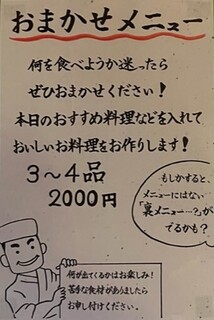 おまかせメニュー
何を食べようか迷ったら
ぜひおまかせください！
本日のおすすめ料理などを入れて
おいしいお料理をお作りします！
3～4品
2000円
もしかすると、
メニューにはない
「裏メニュー…？」が
でるかも？
何が出てくるかはお楽しみ！
苦手な食材がありましたら
お申し付けください。